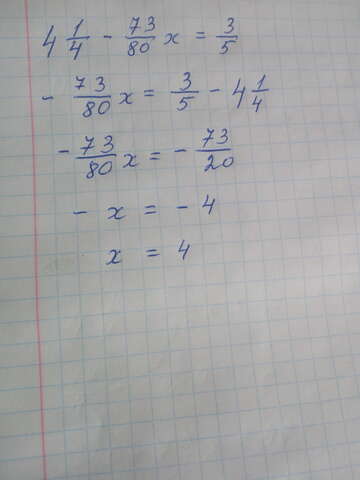 4 1/4 - 73/80 x = 3/5
- 73/80 x = 3/5 - 4 1/4
- 73/80 x = - 73/20
- x = - 4
x = 4